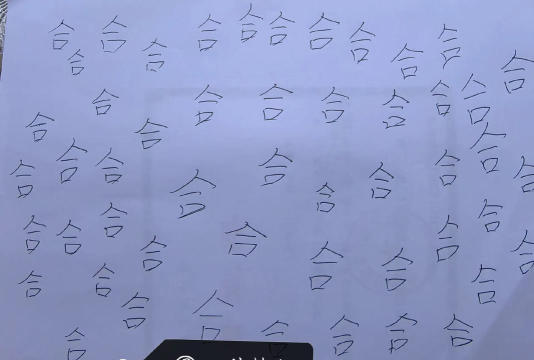 合 合 合 合 合 合 合 合
合 合 合 合
合 合 合 合 合 合 合
合 合 合
合 合 合 合 合 合 合
合 合
合 合 合 合 合 合 合
合 合 合 合
合 合 合 合
合 合 合 合 合